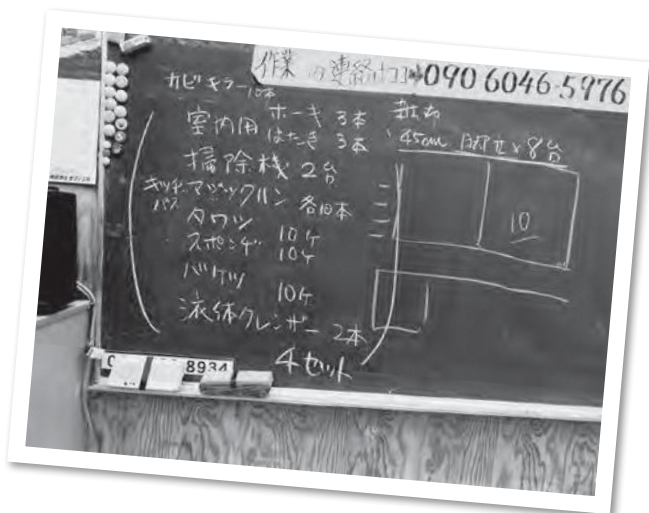 作業の連絡はココ➡090 6046-5976
カビキラー10本
室内用 ホーキ 3本
はたき 3本
掃除機 2台
キッチン マジックリン 各10本
バス
タワシ 10ケ
スポンジ 10ケ
バケツ 10ケ
液体クレンザー 2本
4セット
45cm
×8台
10
8934